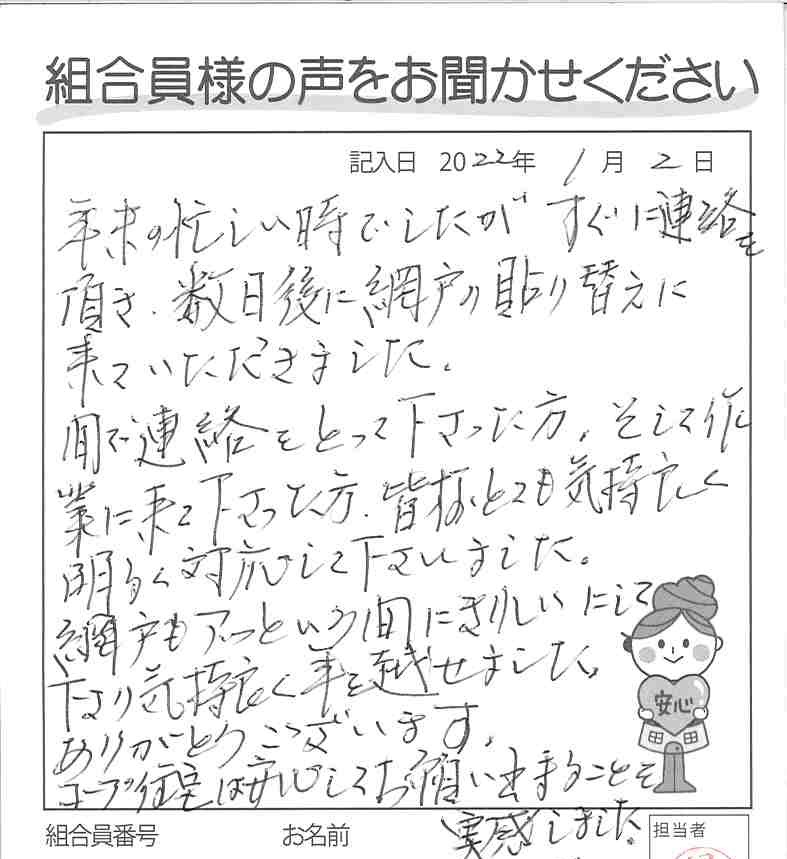 組合員様の声をお聞かせください
記入日 2022年 1月 2日
年末の忙しい時でしたが すぐに連絡を
頂き、数日後に網戸の貼り替えに
来ていただきました。
間で連絡をとって下さった方、そして作
業に来て下さった方、皆様とても気持良く
明るく対応して下さいました。
網戸もアッという間にきれいにして
下さり気持良く年を越せました。
ありがとうございます。
コープ住宅は安心してお願い出来ることを
実感しました。
安心
組合員番号 お名前 担当者